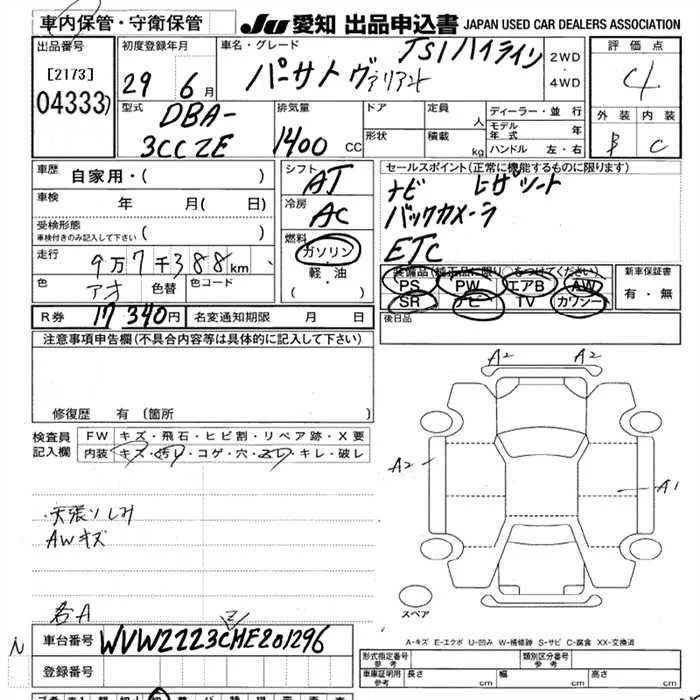 車内保管・守衛保管
JU 愛知 出品申込書 JAPAN USED CAR DEALERS ASSOCIATION
出品番号 初度登録年月 車名・グレード 評価点
[2173] 29 6月 パサート ヴァリアント TSIハイライン 2WD・4WD 4
04333
型式 排気量 ドア 定員 ディーラー・並行 外装 内装
DBA- 人 モデル年式 年
3CCZE 1400 CC 形状 積載 kg ハンドル 左・右 B C
車歴 自家用・( ) シフト AT セールスポイント(正常に機能するものに限ります)
車検 年 月( 日) 冷房 AC ナビ ヒザシート
受検形態 車検付きのみ記入して下さい ( ) バックカメーラ
走行 9万7千388km 燃料 ガソリン・軽・油 ( ) ETC
色 アオ 色替 色コード
装備品(純正品に限り○をつけてください) 新車保証書
PS PW エアB AW 有・無
SR ナビ TV カワシート
R券 17340円 名変通知期限 月 日 後日品
注意事項申告欄(不具合内容等は具体的に記入して下さい)
修復歴 有 〔箇所
検査員記入欄 FW キズ・飛石・ヒビ割・リペア跡・X要
内装 キズ・汚レ・コゲ・穴・スレ・キレ・破レ
A2 A2
A2 A1
・天張りしみ
AWキズ
スペア
各A
A-キズ E-エクボ U-凹み W-補修跡 S-サビ C-腐食 XX-交換済
車台番号 WVWZZZ3CHE201296
Z
N
登録番号
形式指定番号 参考 類別区分番号 参考
車庫証明用 参考 長さ 幅 高さ